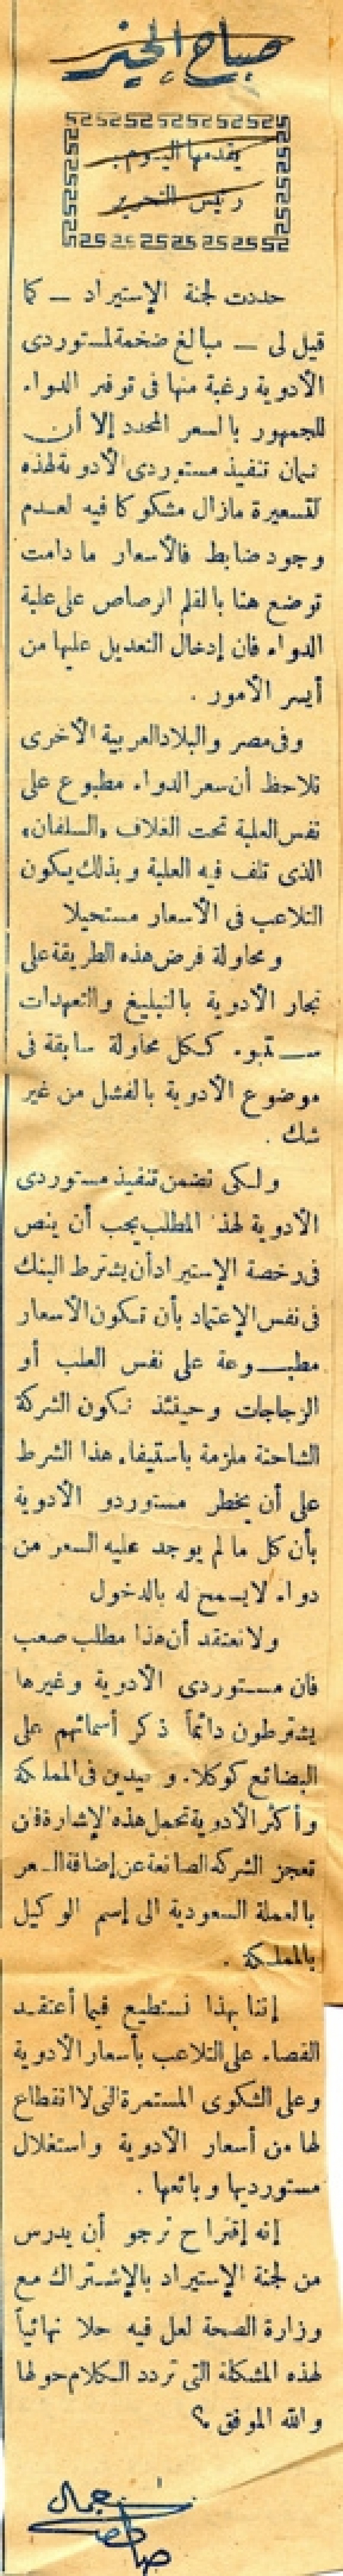 صباح الخير
يقدمها اليوم :
رئيس التحرير
حددت لجنة الإستيراد — كما
قيل لى — مبالغ ضخمة لمستوردى
الأدوية رغبة منها فى توفير الدواء
للجمهور بالسعر المحدد إلا أن
تنفيذ مستوردى الأدوية لهذه
التسعيرة مازال مشكوكا فيه لعدم
وجود ضابط فالأسعار ما دامت
توضع هنا بالقلم الرصاص على علبة
الدواء فان إدخال التعديل عليها من
أيسر الأمور .
وفى مصر والبلاد العربية الأخرى
نلاحظ أن سعر الدواء مطبوع على
نفس العلبة تحت الغلاف «السلفان»
الذى تلف فيه العلبة وبذلك يكون
التلاعب فى الأسعار مستحيلا
ومحاولة فرض هذه الطريقة على
تجار الأدوية بالتبليغ والتعهدات
ستبوء ككل محاولة سابقة فى
موضوع الأدوية بالفشل من غير
شك .
ولكى نضمن تنفيذ مستوردى
الأدوية لهذا المطلب يجب أن ينص
فى رخصة الإستيراد أن يشترط البنك
فى نفس الإعتماد بأن تكون الأسعار
مطبــوعة على نفس العلب أو
الزجاجات وحينئذ تكون الشركة
الشاحنة ملزمة باستيفاء هذا الشرط
على أن يخطر مستوردو الأدوية
بأن كل ما لم يوجد عليه السعر من
دواء لا يسمح له بالدخول
ولا نعتقد أن هذا مطلب صعب
فان مستوردى الأدوية وغيرها
يشترطون دائماً ذكر أسمائهم على
البضائع كوكلاء وحيدين فى المملكة
وأكثر الأدوية تحمل هذه الإشارة فلن
تعجز الشركه الصانعة عن إضافة السعر
بالعملة السعودية الى إسم الوكيل
بالمملكة .
إننا بهذا نستطيع فيما أعتقد
القضاء على التلاعب بأسعار الأدوية
وعلى الشكوى المستمرة التى لا انقطاع
لها من أسعار الأدوية واستغلال
مستورديها وبائعها .
إنه إقتراح نرجو أن يدرس
من لجنة الإستيراد بالإشتراك مع
وزارة الصحة لعل فيه حلا نهائياً
لهذه المشكلة التى تردد الكلام حولها
والله الموفق ؟